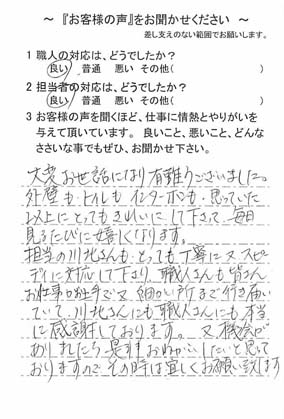 ～『お客様の声』をお聞かせください～
差し支えのない範囲でお願いします。
1 職人の対応は、どうでしたか?
良い 普通 悪い その他( )
2 担当者の対応は、どうでしたか?
良い 普通 悪い その他( )
3 お客様の声を聞くほど、仕事に情熱とやりがいを
与えて頂いています。良いこと、悪いこと、どんな
ささいな事でもぜひ、お聞かせ下さい。
大変お世話になり有難うございました。
外壁も・トイレも インターホンも・思っていた
以上にとってもきれいにして下さって、毎日
見るたびに嬉しくなります。
担当の川北さんも・とっても丁寧に又スピー
ディに対応して下さり、職人さんも皆さん
お仕事が上手で又 細かい所まで行き届い
ていて、川北さんにも職人さんにも本当
に感謝しております。又機会が
ありましたら是非おねがいしたいと思って
おりますので その時は宜しくお願い致します